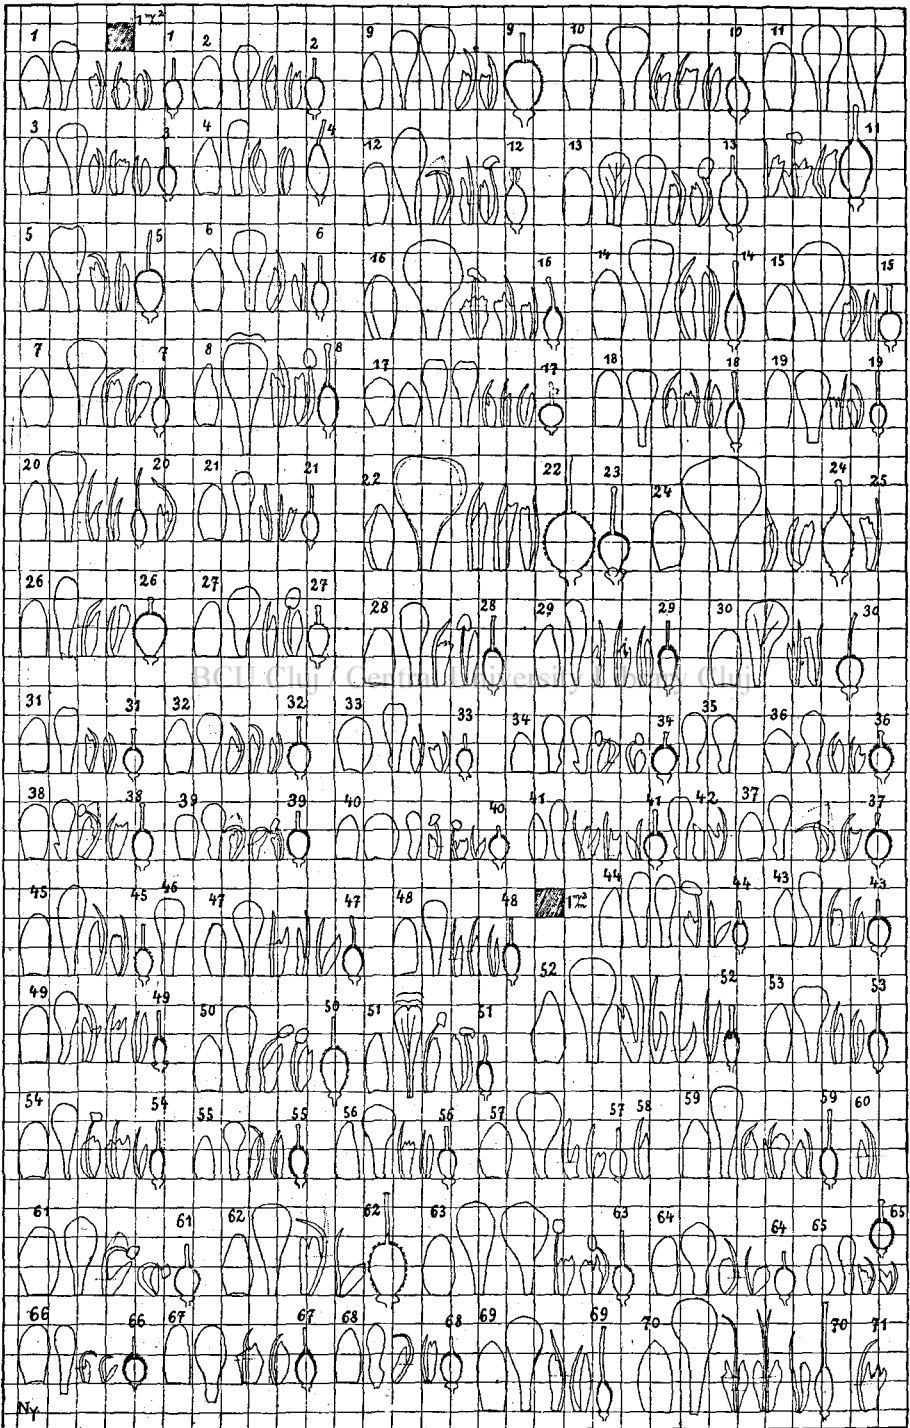 1 1 2 2 9 9 10 10 11
3 3 4 4 12 12 13 13 11
5 5 6 6 16 16 14 14 15 15
7 7 8 8 17 17 18 18 19 19
20 20 21 21 22 22 23 24 24 25
26 26 27 27 28 28 29 29 30 30
BCU Cluj / Central University Library Cluj
31 31 32 32 33 33 34 34 35 36 36
38 38 39 39 40 40 41 41 42 37 37
45 45 46 47 47 48 48 44 44 43 43
49 49 50 50 51 51 52 52 53 53
54 54 55 55 56 56 57 57 58 59 59 60
61 61 62 62 63 63 64 64 65 65
66 66 67 67 68 68 69 69 70 70 71
Ny